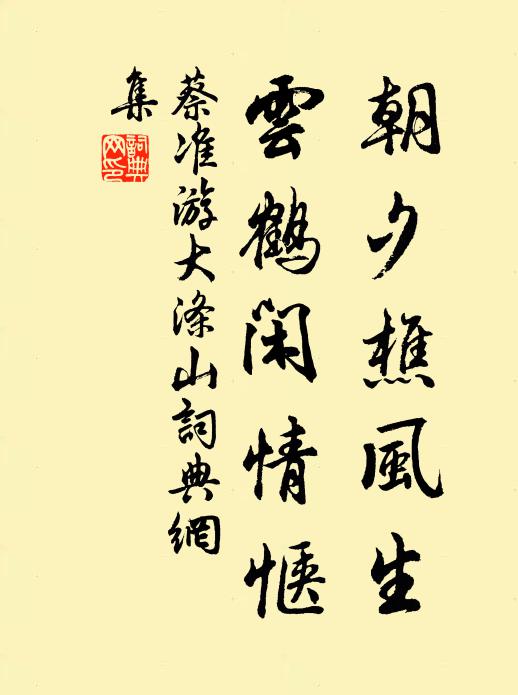 朝夕樵風生
雲鶴閑情愜
蔡准游大滌山詞典網
集
詞典網印